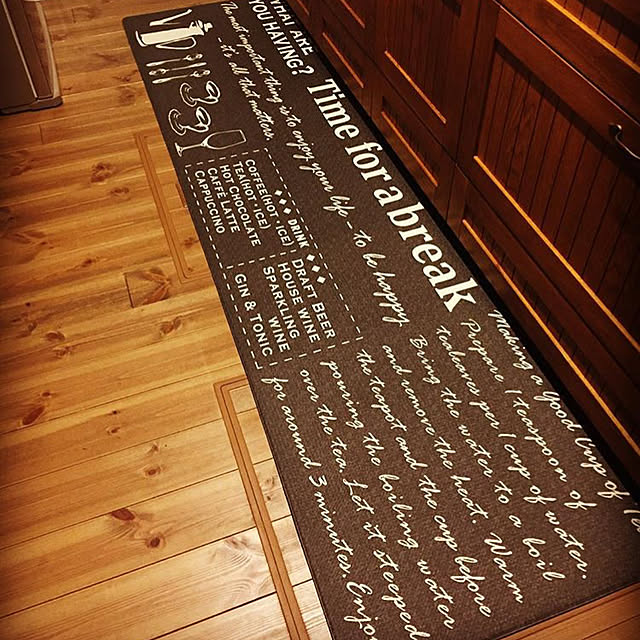 WHAT ARE
YOU HAVING?
Time for a break
The most important thing is to enjoy your life - to be happy
- it's all that matters.
DRINK
COFFEE(HOT · ICE)
TEA(HOT · ICE)
HOT CHOCOLATE
CAFFE LATTE
CAPPUCCINO
DRAFT BEER
HOUSE WINE
SPARKLING
WINE
GIN & TONIC
Making a Good Cup of
Prepare 1 teaspoon of
tealeaves per 1 cup of water.
Bring the water to a boil
and remove the heat. Warm
the teapot and the cup before
pouring the boiling water
over the tea. Let it steeped
for around 3 minutes. Enjoy